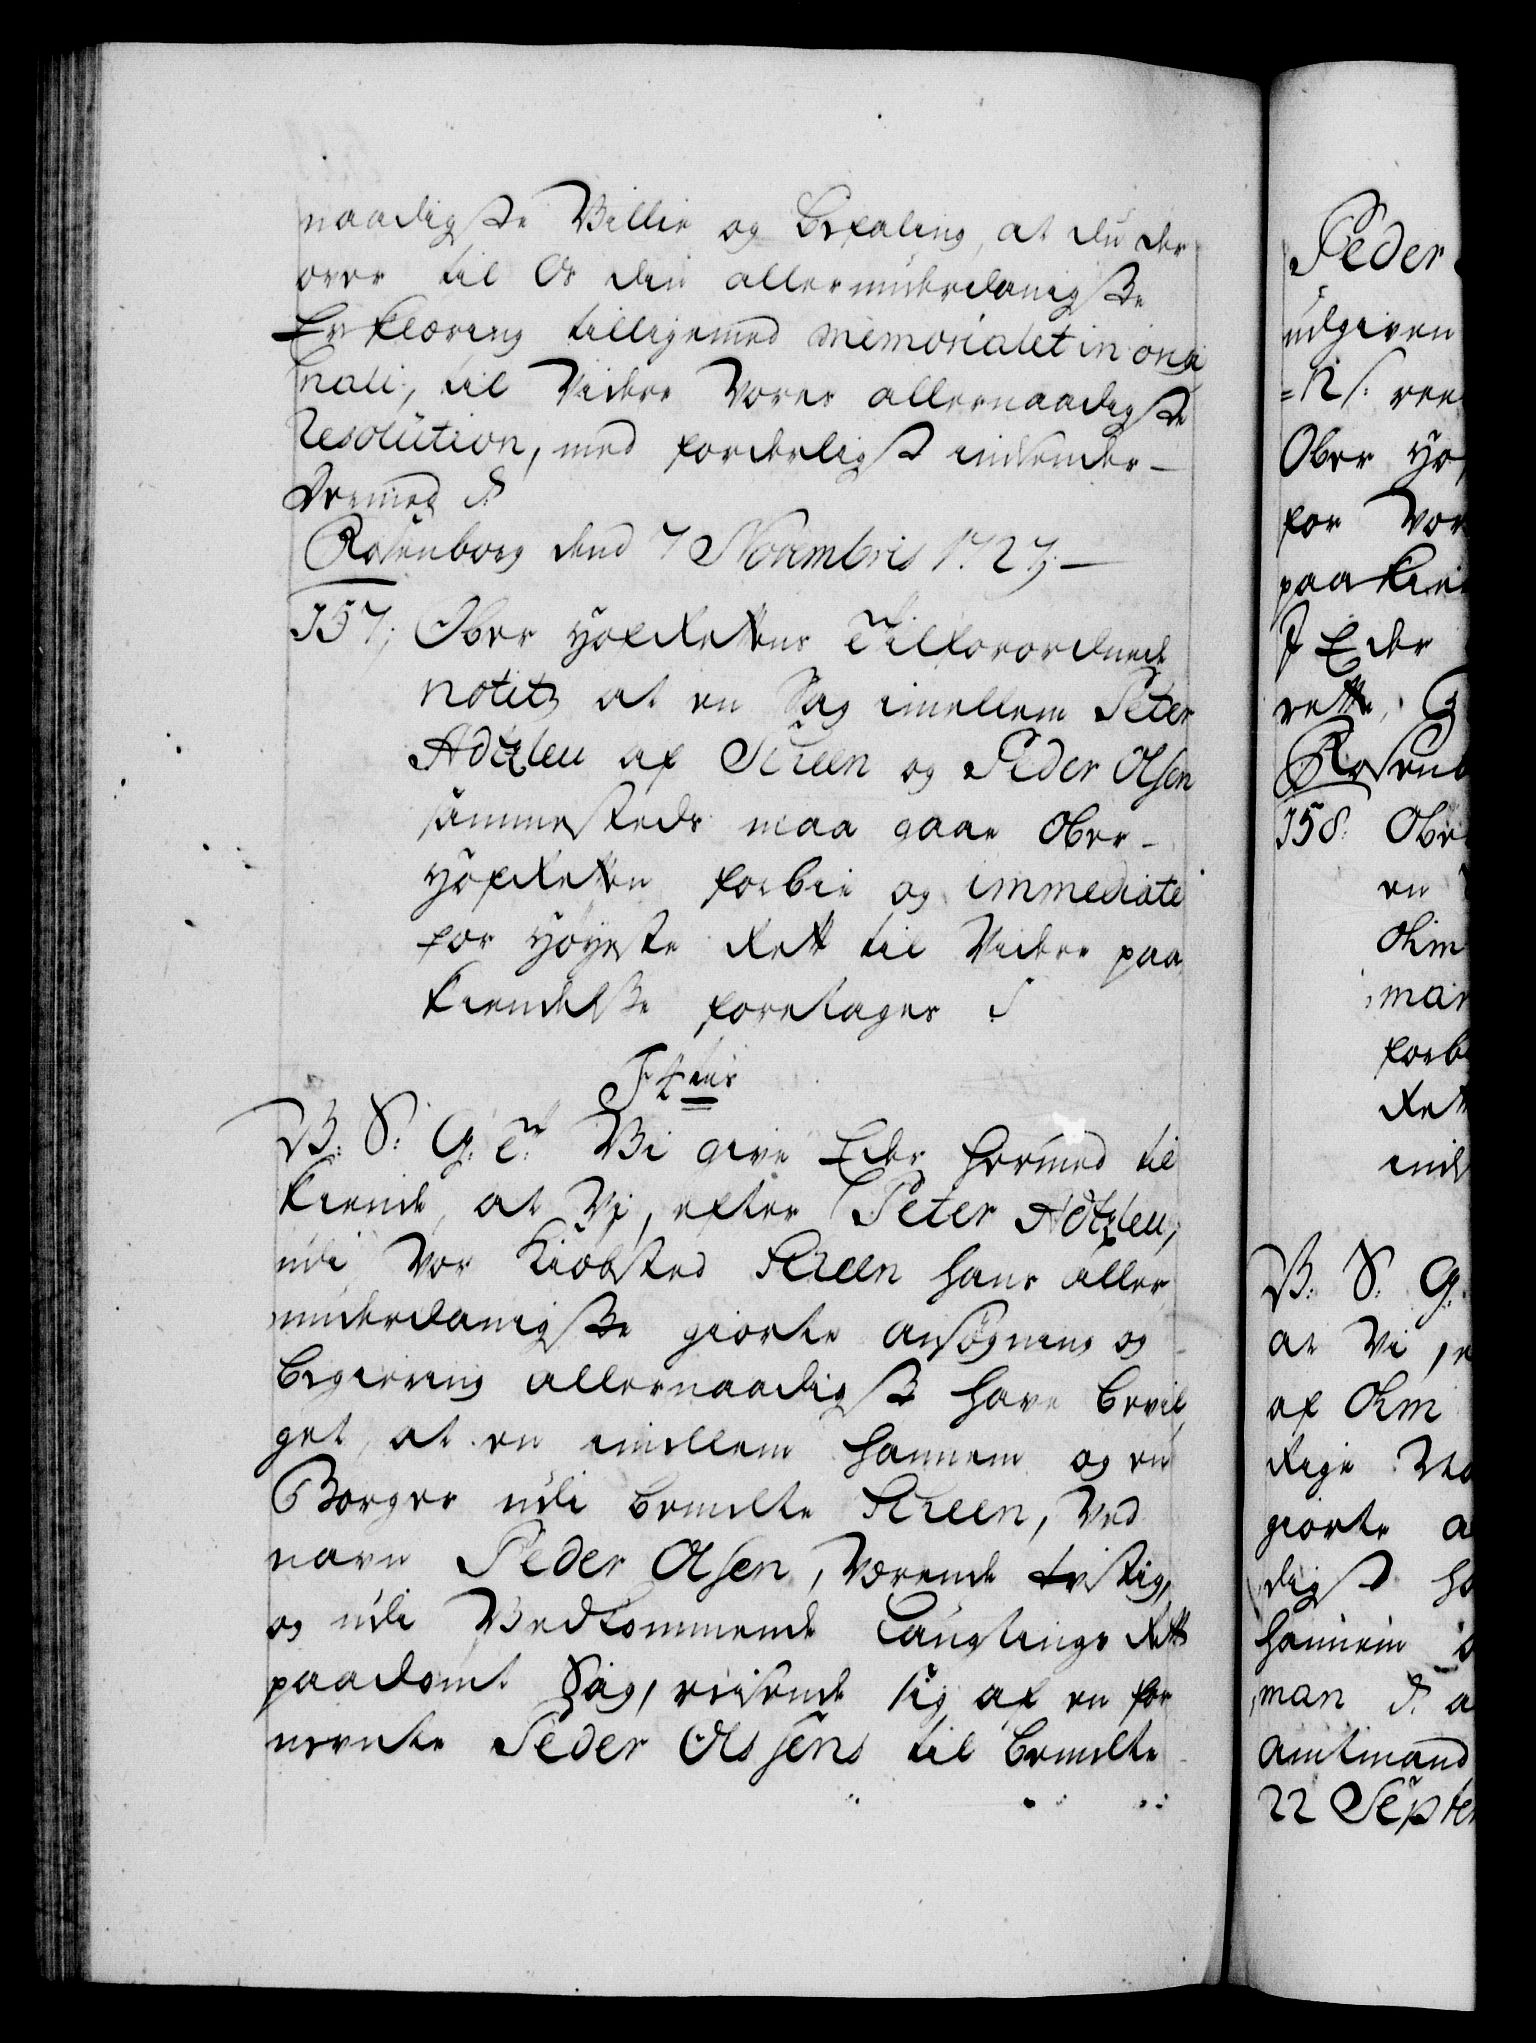 naadigste Villie og Befaling, at du der
over til Os din allerunderdanigste
Erklæring tilligemed memorialet in origi
nali, til Videre Vores allernaadigste
Resolution, med forderligst indsender –
Dermed
Rosenborg dend 7 Novembris 1727. –
157; Ober Hof Rettens Tilforordnede
notits at en Sag imellem Peter
Adtzleu af Scheen og Peder Olsen
sammesteds maa gaae Ober –
Hof Retten forbie og immediate
for Høyeste Rett til Videre paa
kiendelse foretages
F 4tus
V: S: G: T: Vi give Eder hermed til
kiende, at Vj, efter Peter Adtzleu,
udi Vor Kiøbsted Scheen hans aller
underdanigste giorte ansøgning og
begiering allernaadigst have bevil
get, at en imellem hannem og en
Borger udi bemelte Scheen, Ved
navn Peder Olsen, Værende tvistig,
og udi Vedkommende Laugtings Rett
paadømt Sag, reisende sig af en for
nevnte Peder Olssens til bemelte
Peder
udgiven
Ober Hof
for Vor
paakien
J Eder
rette,
Rosenb
158: Ober
en
forb
Rett
ind
V: S: G:
at Vi,
af
giorte
digst ha
hannem
man
Amtmand
22 Septem